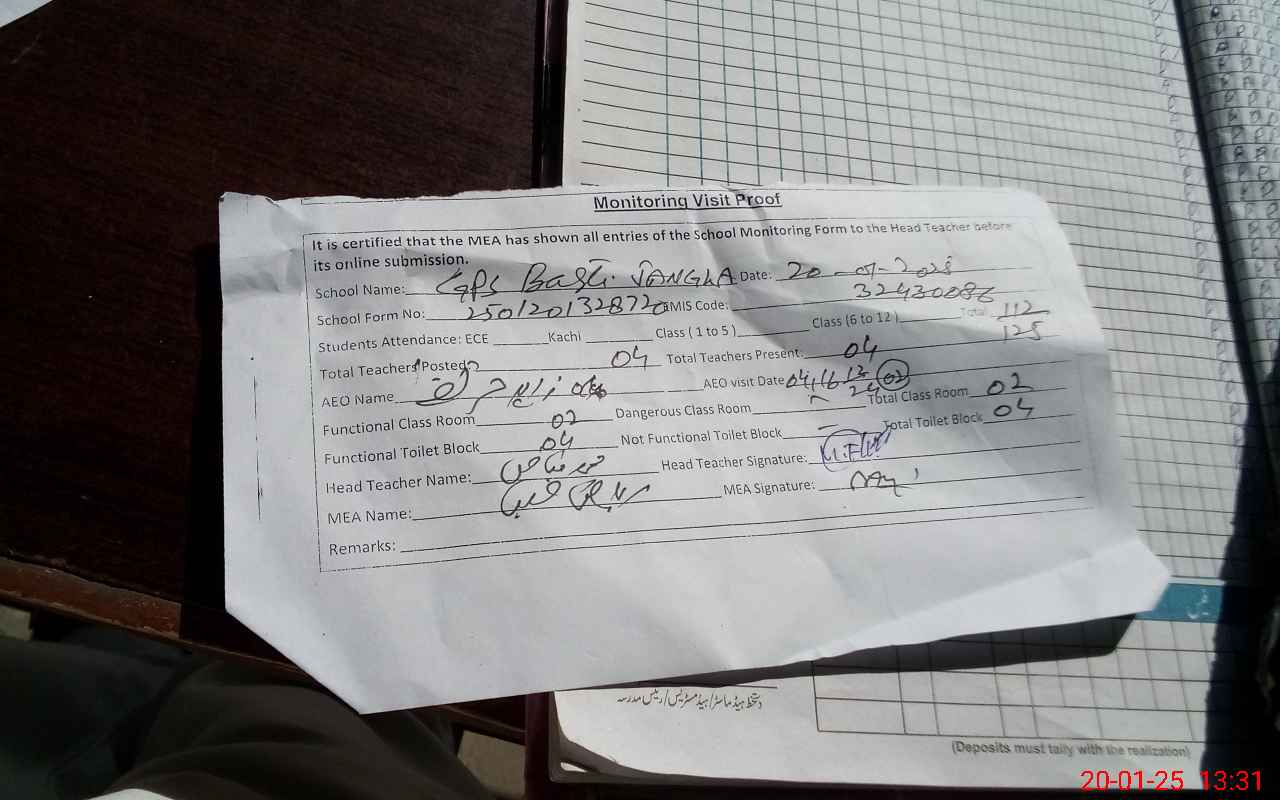 Monitoring Visit Proof
It is certified that the MEA has shown all entries of the School Monitoring Form to the Head Teacher before
its online submission.
School Name: GPS Basti JANGLA Date: 20-01-2025
School Form No: 2501201328720 EMIS Code: 32430086
Students Attendance: ECE Kachi Class ( 1 to 5 ) Class (6 to 12 ) Total 112
125
Total Teachers Posted 04 Total Teachers Present: 04
AEO Name AEO visit Date 04, 16-12 24 02
Functional Class Room 02 Dangerous Class Room Total Class Room 02
Functional Toilet Block 04 Not Functional Toilet Block — Total Toilet Block 04
Head Teacher Name: Head Teacher Signature:
MEA Name: MEA Signature:
Remarks:
دستخط ہیڈ ماسٹر/ ہیڈ مسٹریس/ رئیس مدرسہ
(Deposits must tally with the realization)
20-01-25 13:31